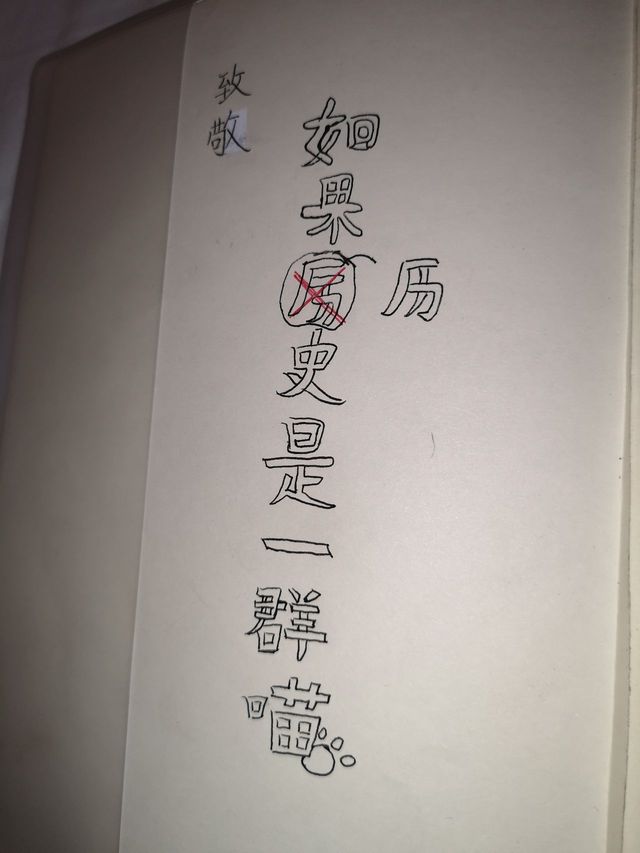 致敬
如果历史是一群喵
历